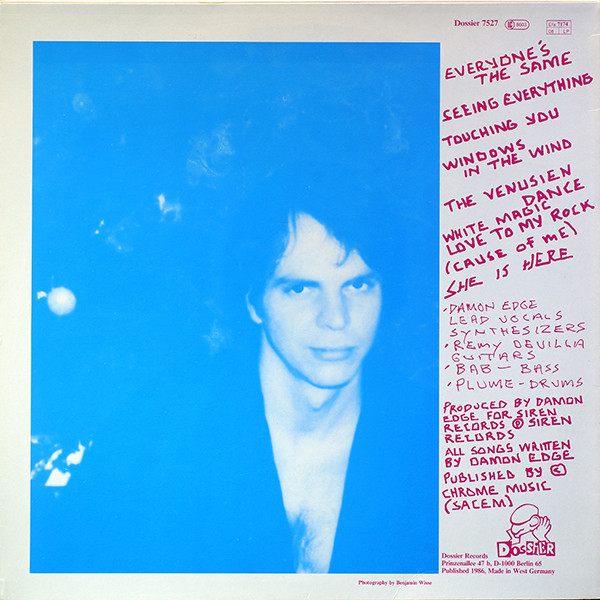 Dossier 7527
EVERYONE'S
THE SAME
SEEING EVERYTHING
TOUCHING YOU
WINDOWS
IN THE WIND
THE VENUSIEN
DANCE
WHITE MAGIC
LOVE TO MY ROCK
(CAUSE OF ME)
SHE IS HERE
'DAMON EDGE
LEAD VOCALS
SYNTHESIZERS
'REMY DEVILLA
GUITARS
'BAB-BASS
'PLUME-DRUMS
PRODUCED BY DAMON
EDGE FOR SIREN
RECORDS Ⓟ SIREN
RECORDS
ALL SONGS WRITTEN
BY DAMON EDGE
PUBLISHED BY ©
CHROME MUSIC
(SACEM)
DOSSIER
Dossier Records
Prinzenallee 47 b, D-1000 Berlin 65
Published 1986, Made in West Germany
Photography by Benjamin Wisse